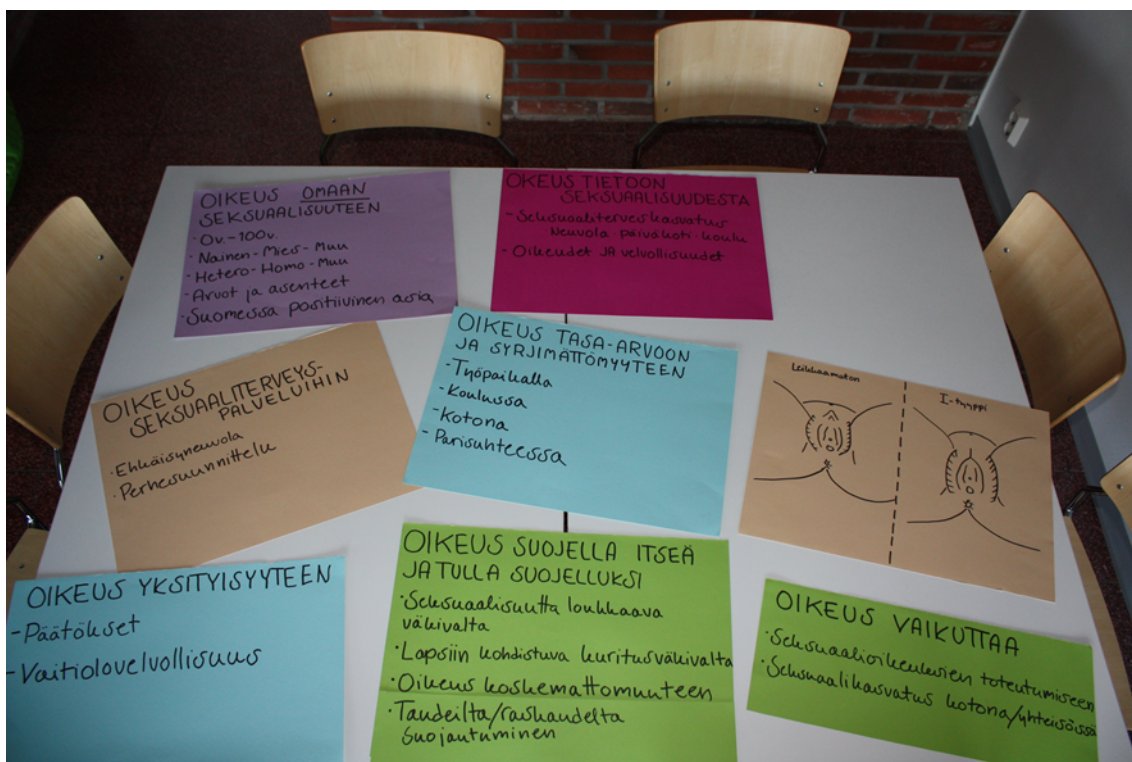 OIKEUS OMAAN
SEKSUAALISUUTEEN
· 0v.-100v.
· Nainen - Mies - Muu
· Hetero - Homo - Muu
· Arvot ja asenteet
· Suomessa positiivinen asia
OKEUS TIETOON
SEKSUAALISUUDESTA
- Seksuaaliterveiskasvatus
Neuvola - päiväkoti - koulu
- Oikeudet JA velvollisuudet
OIKEUS
SEKSUAALITERVEYS-
PALVELUIHIN
· Ehkäisyneuvola
· Perhesuunnittelu
OIKEUS TASA-ARVOON
JA SYRJIMÄTTÖMYYTEEN
- Työpaikalla
- Koulussa
- Kotona
- Parisuhteessa
Leikkaamaton
I-tyyppi
OIKEUS YKSITYISYYTEEN
- Päätökset
- Vaitiolovelvollisuus
OIKEUS SUOJELLA ITSEÄ
JA TULLA SUOJELLUKSI
· Seksuaalisuutta loukkaava
väkivalta
· Lapsiin kohdistuva kuritusväkivalta
· Oikeus koskemattomuuteen
· Taudeilta/raskaudelta
suojautuminen
OIKEUS VAIKUTTAA
· Seksuaalioikeuksien toteutumiseen
· Seksuaalikasvatus kotona/yhteisöissä